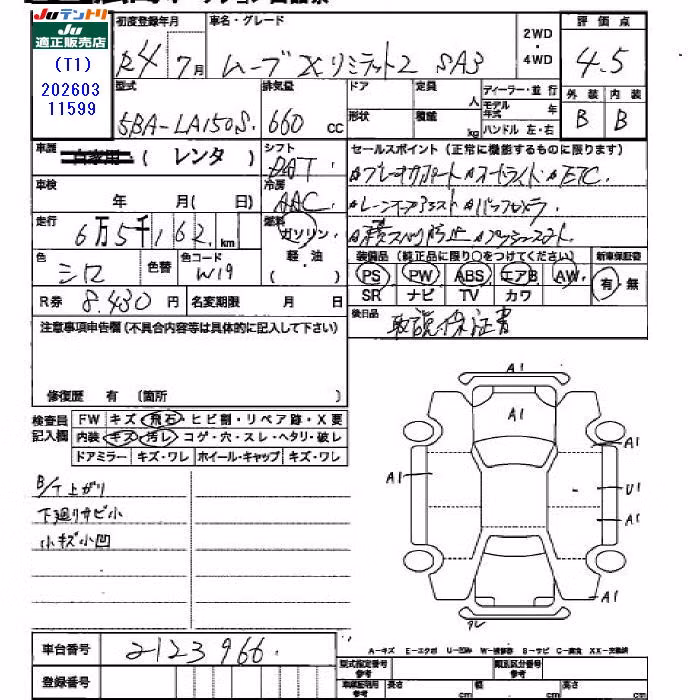 JUテントリ
JU 適正販売店
(T1)
202603
11599
初度登録年月 車名・グレード 2WD・4WD 評価点
R4 7月 ムーブ X リミテッド2 SA3 4.5
型式 排気量 ドア 定員 人 ディーラー・並行 外装 内装
モデル年式 年
5BA-LA150S. 660 cc 形状 積載 kg ハンドル 左・右 B B
車歴 自家用 (レンタ) シフト セールスポイント (正常に機能するものに限ります)
DAT
車検 年 月 (日) 冷房 AAC ETC
走行 6万5千162 km 燃料 ガソリン バックカメラ
軽・油
( )
色 シロ 色替 色コード W19 装備品 (純正品に限り○をつけてください) 新車保証書
PS PW ABS エアB AW 有・無
SR ナビ TV カワ
R券 8.430円 名変期限 月 日
後日品 取説・保証書
注意事項申告欄(不具合内容等は具体的に記入して下さい)
修復歴 有 (箇所 )
検査員記入欄 FW キズ・飛石・ヒビ割・リペア跡・X要
内装 キズ・汚レ・コゲ・穴・スレ・ヘタリ・破レ
ドアミラー キズ・ワレ ホイール・キャップ キズ・ワレ
B/T上がり
下廻りサビ小
小キズ小凹
A1
A1
A1
A1
A1
U1
A1
A1
車台番号 2123966
登録番号
A-キズ E-エクボ
型式指定番号 参考 類別区分番号 参考
長さ cm 幅 cm 高さ cm